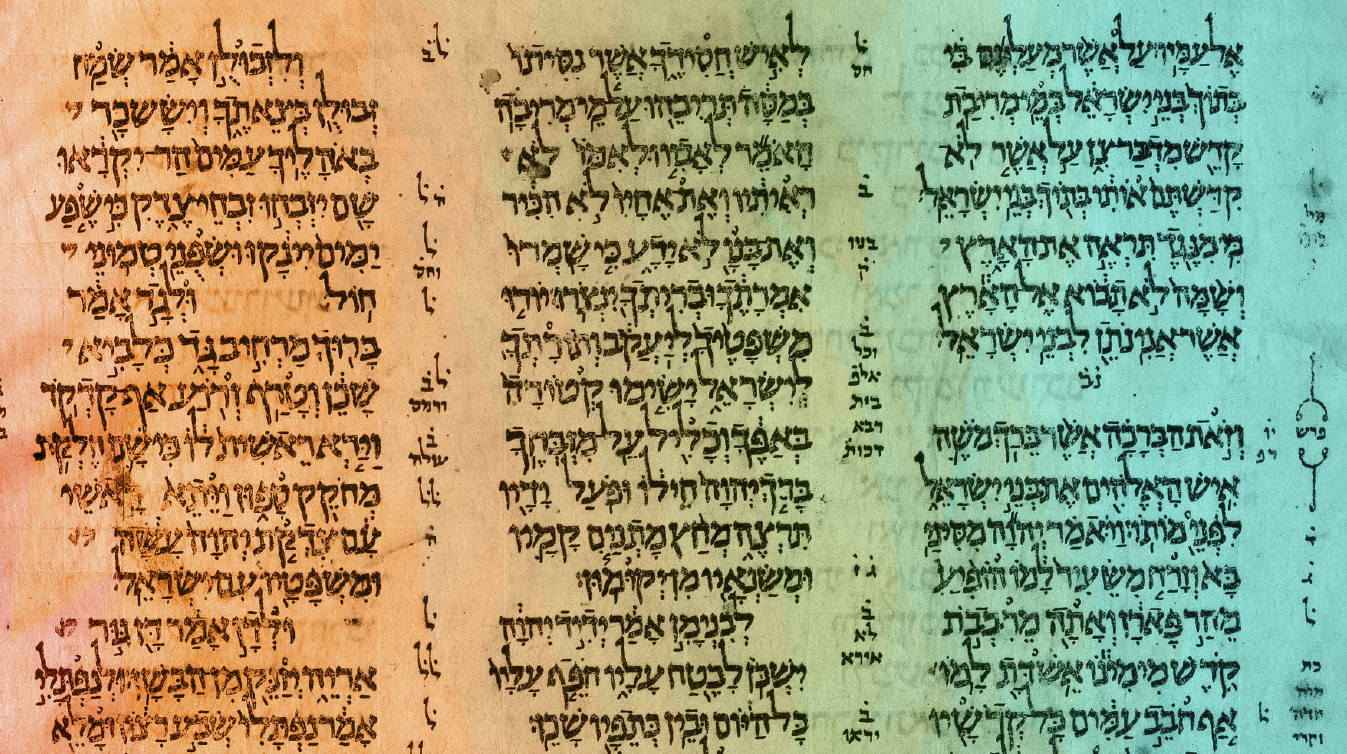 אֶל עַמָּיו עַל אֲשֶׁר מְעַלְתֶּם בִּי
בְּתוֹךְ בְּנֵי יִשְׂרָאֵל בְּמֵי מְרִיבַת
קָדֵשׁ מִדְבַּר צִן עַל אֲשֶׁר לֹא
קִדַּשְׁתֶּם אוֹתִי בְּתוֹךְ בְּנֵי יִשְׂרָאֵל
כִּי מִנֶּגֶד תִּרְאֶה אֶת הָאָרֶץ
וְשָׁמָּה לֹא תָבוֹא אֶל הָאָרֶץ
אֲשֶׁר אֲנִי נֹתֵן לִבְנֵי יִשְׂרָאֵל
נב
וְזֹאת הַבְּרָכָה אֲשֶׁר בֵּרַךְ מֹשֶׁה
אִישׁ הָאֱלֹהִים אֶת בְּנֵי יִשְׂרָאֵל
לִפְנֵי מוֹתוֹ וַיֹּאמַר יְהוָה מִסִּינַי
בָּא וְזָרַח מִשֵּׂעִיר לָמוֹ הוֹפִיעַ
מֵהַר פָּארָן וְאָתָה מֵרִבְבֹת
קֹדֶשׁ מִימִינוֹ אֵשׁ דָּת לָמוֹ
אַף חֹבֵב עַמִּים כָּל קְדֹשָׁיו
פרש
לְאִישׁ חֲסִידֶךָ אֲשֶׁר נִסִּיתוֹ
בְּמַסָּה תְּרִיבֵהוּ עַל מֵי מְרִיבָה
הָאֹמֵר לְאָבִיו וּלְאִמּוֹ לֹא
רְאִיתִיו וְאֶת אֶחָיו לֹא הִכִּיר
וְאֶת בָּנָו לֹא יָדָע כִּי שָׁמְרוּ
אִמְרָתֶךָ וּבְרִיתְךָ יִנְצֹרוּ יוֹרוּ
מִשְׁפָּטֶיךָ לְיַעֲקֹב וְתוֹרָתְךָ
לְיִשְׂרָאֵל יָשִׂימוּ קְטוֹרָה
בְּאַפֶּךָ וְכָלִיל עַל מִזְבְּחֶךָ
בָּרֵךְ יְהוָה חֵילוֹ וּפֹעַל יָדָיו
תִּרְצֶה מְחַץ מָתְנַיִם קָמָיו
וּמְשַׂנְאָיו מִן יְקוּמוּן
לְבִנְיָמִן אָמַר יְדִיד יְהוָה
יִשְׁכֹּן לָבֶטַח עָלָיו חֹפֵף עָלָיו
כָּל הַיּוֹם וּבֵין כְּתֵפָיו שָׁכֵן
וְלִזְבוּלֻן אָמַר שְׂמַח
זְבוּלֻן בְּצֵאתֶךָ וְיִשָּׂשכָר
בְּאֹהָלֶיךָ עַמִּים הַר יִקְרָאוּ
שָׁם יִזְבְּחוּ זִבְחֵי צֶדֶק כִּי שֶׁפַע
יַמִּים יִינָקוּ וּשְׂפֻנֵי טְמוּנֵי
חוֹל וּלְגָד אָמַר
בָּרוּךְ מַרְחִיב גָּד כְּלָבִיא
שָׁכֵן וְטָרַף זְרוֹעַ אַף קָדְקֹד
וַיַּרְא רֵאשִׁית לוֹ כִּי שָׁם חֶלְקַת
מְחֹקֵק סָפוּן וַיֵּתֵא רָאשֵׁי
עָם צִדְקַת יְהוָה עָשָׂה
וּמִשְׁפָּטָיו עִם יִשְׂרָאֵל
וּלְדָן אָמַר דָּן גּוּר
אַרְיֵה יְזַנֵּק מִן הַבָּשָׁן וּלְנַפְתָּלִי
אָמַר נַפְתָּלִי שְׂבַע רָצוֹן וּמָלֵא